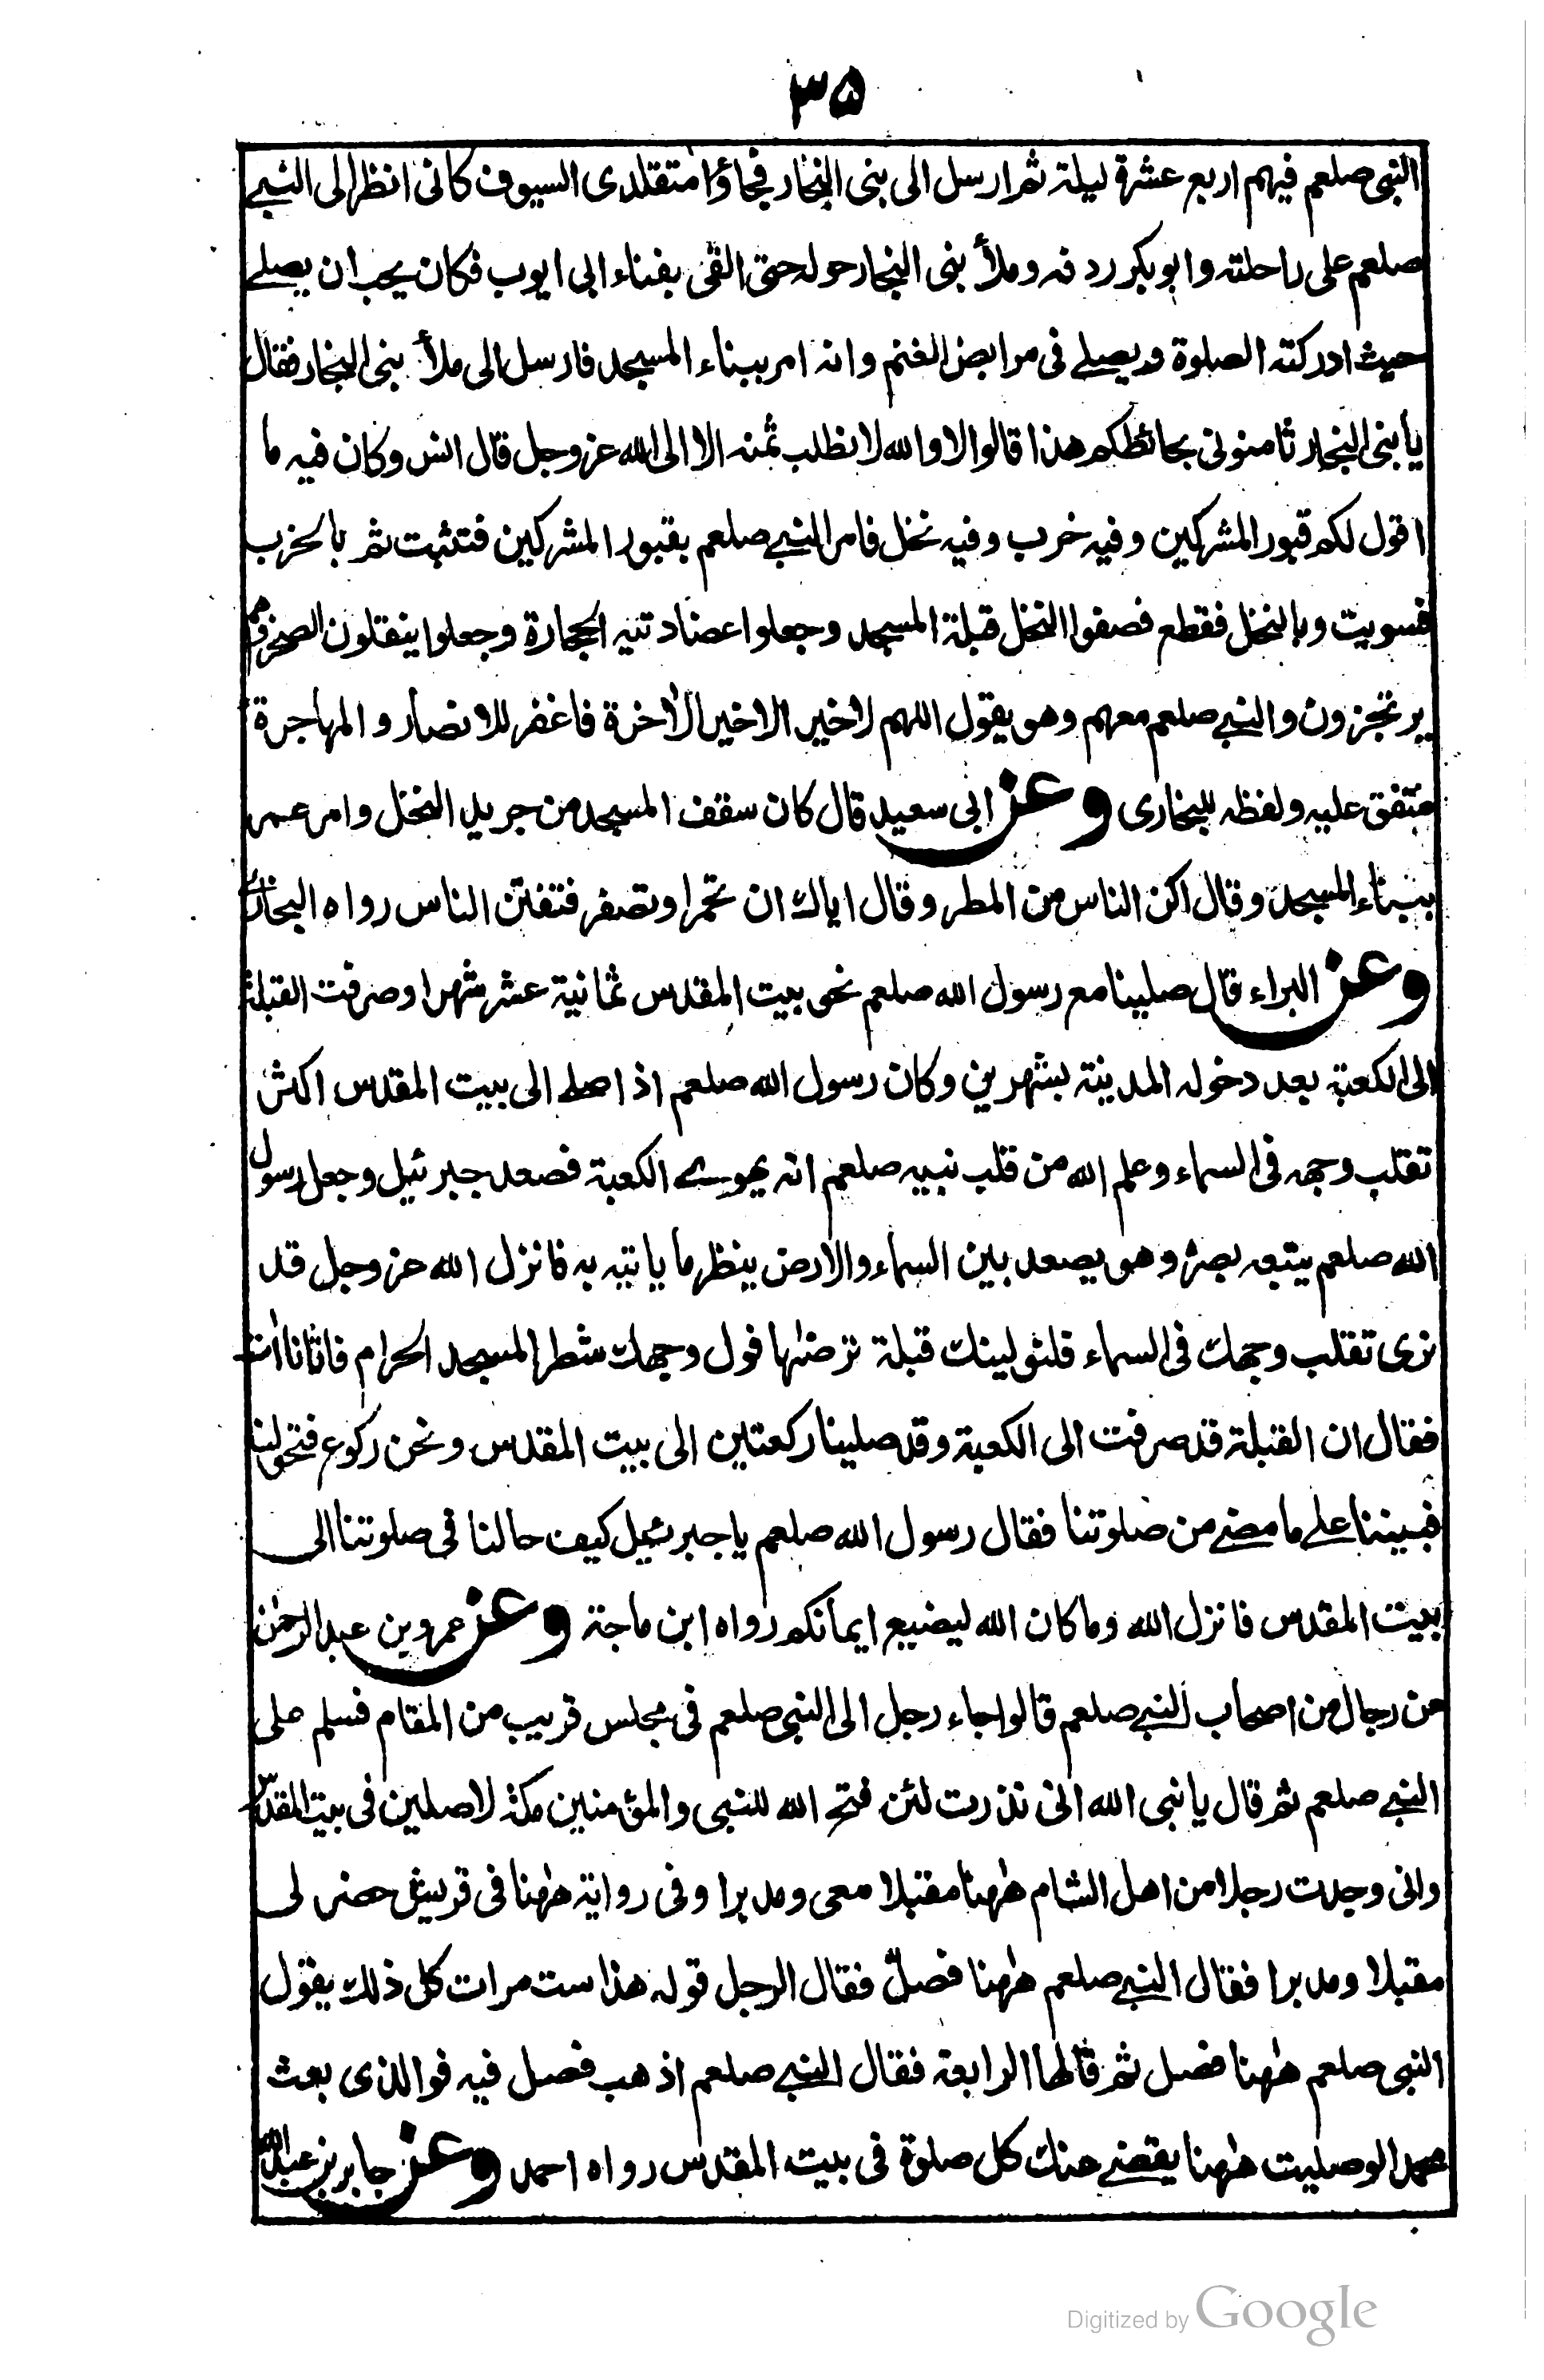 ۳۵
النبى صلعم فيهم اربع عشرة ليلة ثم ارسل الى بنى النجار فجاؤا متقلدى السيوف كانى انظر الى النبى
صلعم على راحلته وابو بكر ردفه وملأ بنى النجار حوله حتى القى بفناء ابى ايوب فكان يحب ان يصلى
حيث ادركته الصلوة ويصلى فى مرابض الغنم وانه امر ببناء المسجد فارسل الى ملأ بنى النجار فقال
يا بنى النجار ثامنونى بحائطكم هذا قالوا لا والله لا نطلب ثمنه الا الى الله عز وجل قال انس وكان فيه ما
اقول لكم قبور المشركين وفيه خرب وفيه نخل فامر النبى صلعم بقبور المشركين فنبثت ثم بالخرب
فسويت وبالنخل فقطع فصفوا النخل قبلة المسجد وجعلوا عضادتيه الحجارة وجعلوا ينقلون الصخر وهم
يرتجزون والنبى صلعم معهم وهو يقول اللهم لا خير الا خير الاٰخرة فاغفر للانصار والمهاجرة
متفق عليه ولفظه للبخارى وعن ابى سعيد قال كان سقف المسجد من جريد النخل وامر عمر
ببناء المسجد وقال اكن الناس من المطر وقال اياك ان تحمر او تصفر فتفتن الناس رواه البخارى
وعن البراء قال صلينا مع رسول الله صلعم نحو بيت المقدس ثمانية عشر شهرا وصرفت القبلة
الى الكعبة بعد دخوله المدينة بشهرين وكان رسول الله صلعم اذا صلى الى بيت المقدس اكثر
تقلب وجهه فى السماء وعلم الله من قلب نبيه صلعم انه يهوى الكعبة فصعد جبرئيل وجعل رسول
الله صلعم يتبعه بصره وهو يصعد بين السماء والارض ينظر ما ياتيه به فانزل الله عز وجل قد
نرى تقلب وجهك فى السماء فلنولينك قبلة ترضٰها فول وجهك شطر المسجد الحرام فاتانا اٰت
فقال ان القبلة قد صرفت الى الكعبة وقد صلينا ركعتين الى بيت المقدس ونحن ركوع فتحولنا
فبنينا على ما مضى من صلوتنا فقال رسول الله صلعم يا جبرئيل كيف حالنا فى صلوتنا الى
بيت المقدس فانزل الله وما كان الله ليضيع ايمانكم رواه ابن ماجة وعن عمرو بن عبد الرحمٰن
عن رجال من اصحاب النبى صلعم قالوا جاء رجل الى النبى صلعم فى مجلس قريب من المقام فسلم على
النبى صلعم ثم قال يا نبى الله انى نذرت لئن فتح الله للنبى والمؤمنين مكة لاصلين فى بيت المقدس
وانى وجدت رجلا من اهل الشام هٰهنا مقبلا معى ومدبرا وفى رواية هٰهنا فى قريش حضر لى
مقبلا ومدبرا فقال النبى صلعم هٰهنا فصل فقال الرجل قوله هذا ست مرات كل ذلك يقول
النبى صلعم هٰهنا فصل ثم قالها الرابعة فقال النبى صلعم اذهب فصل فيه فوالذى بعث
محمد الو صليت هٰهنا يقضى عنك كل صلوة فى بيت المقدس رواه احمد وعن جابر بن عبد الله
Digitized by Google